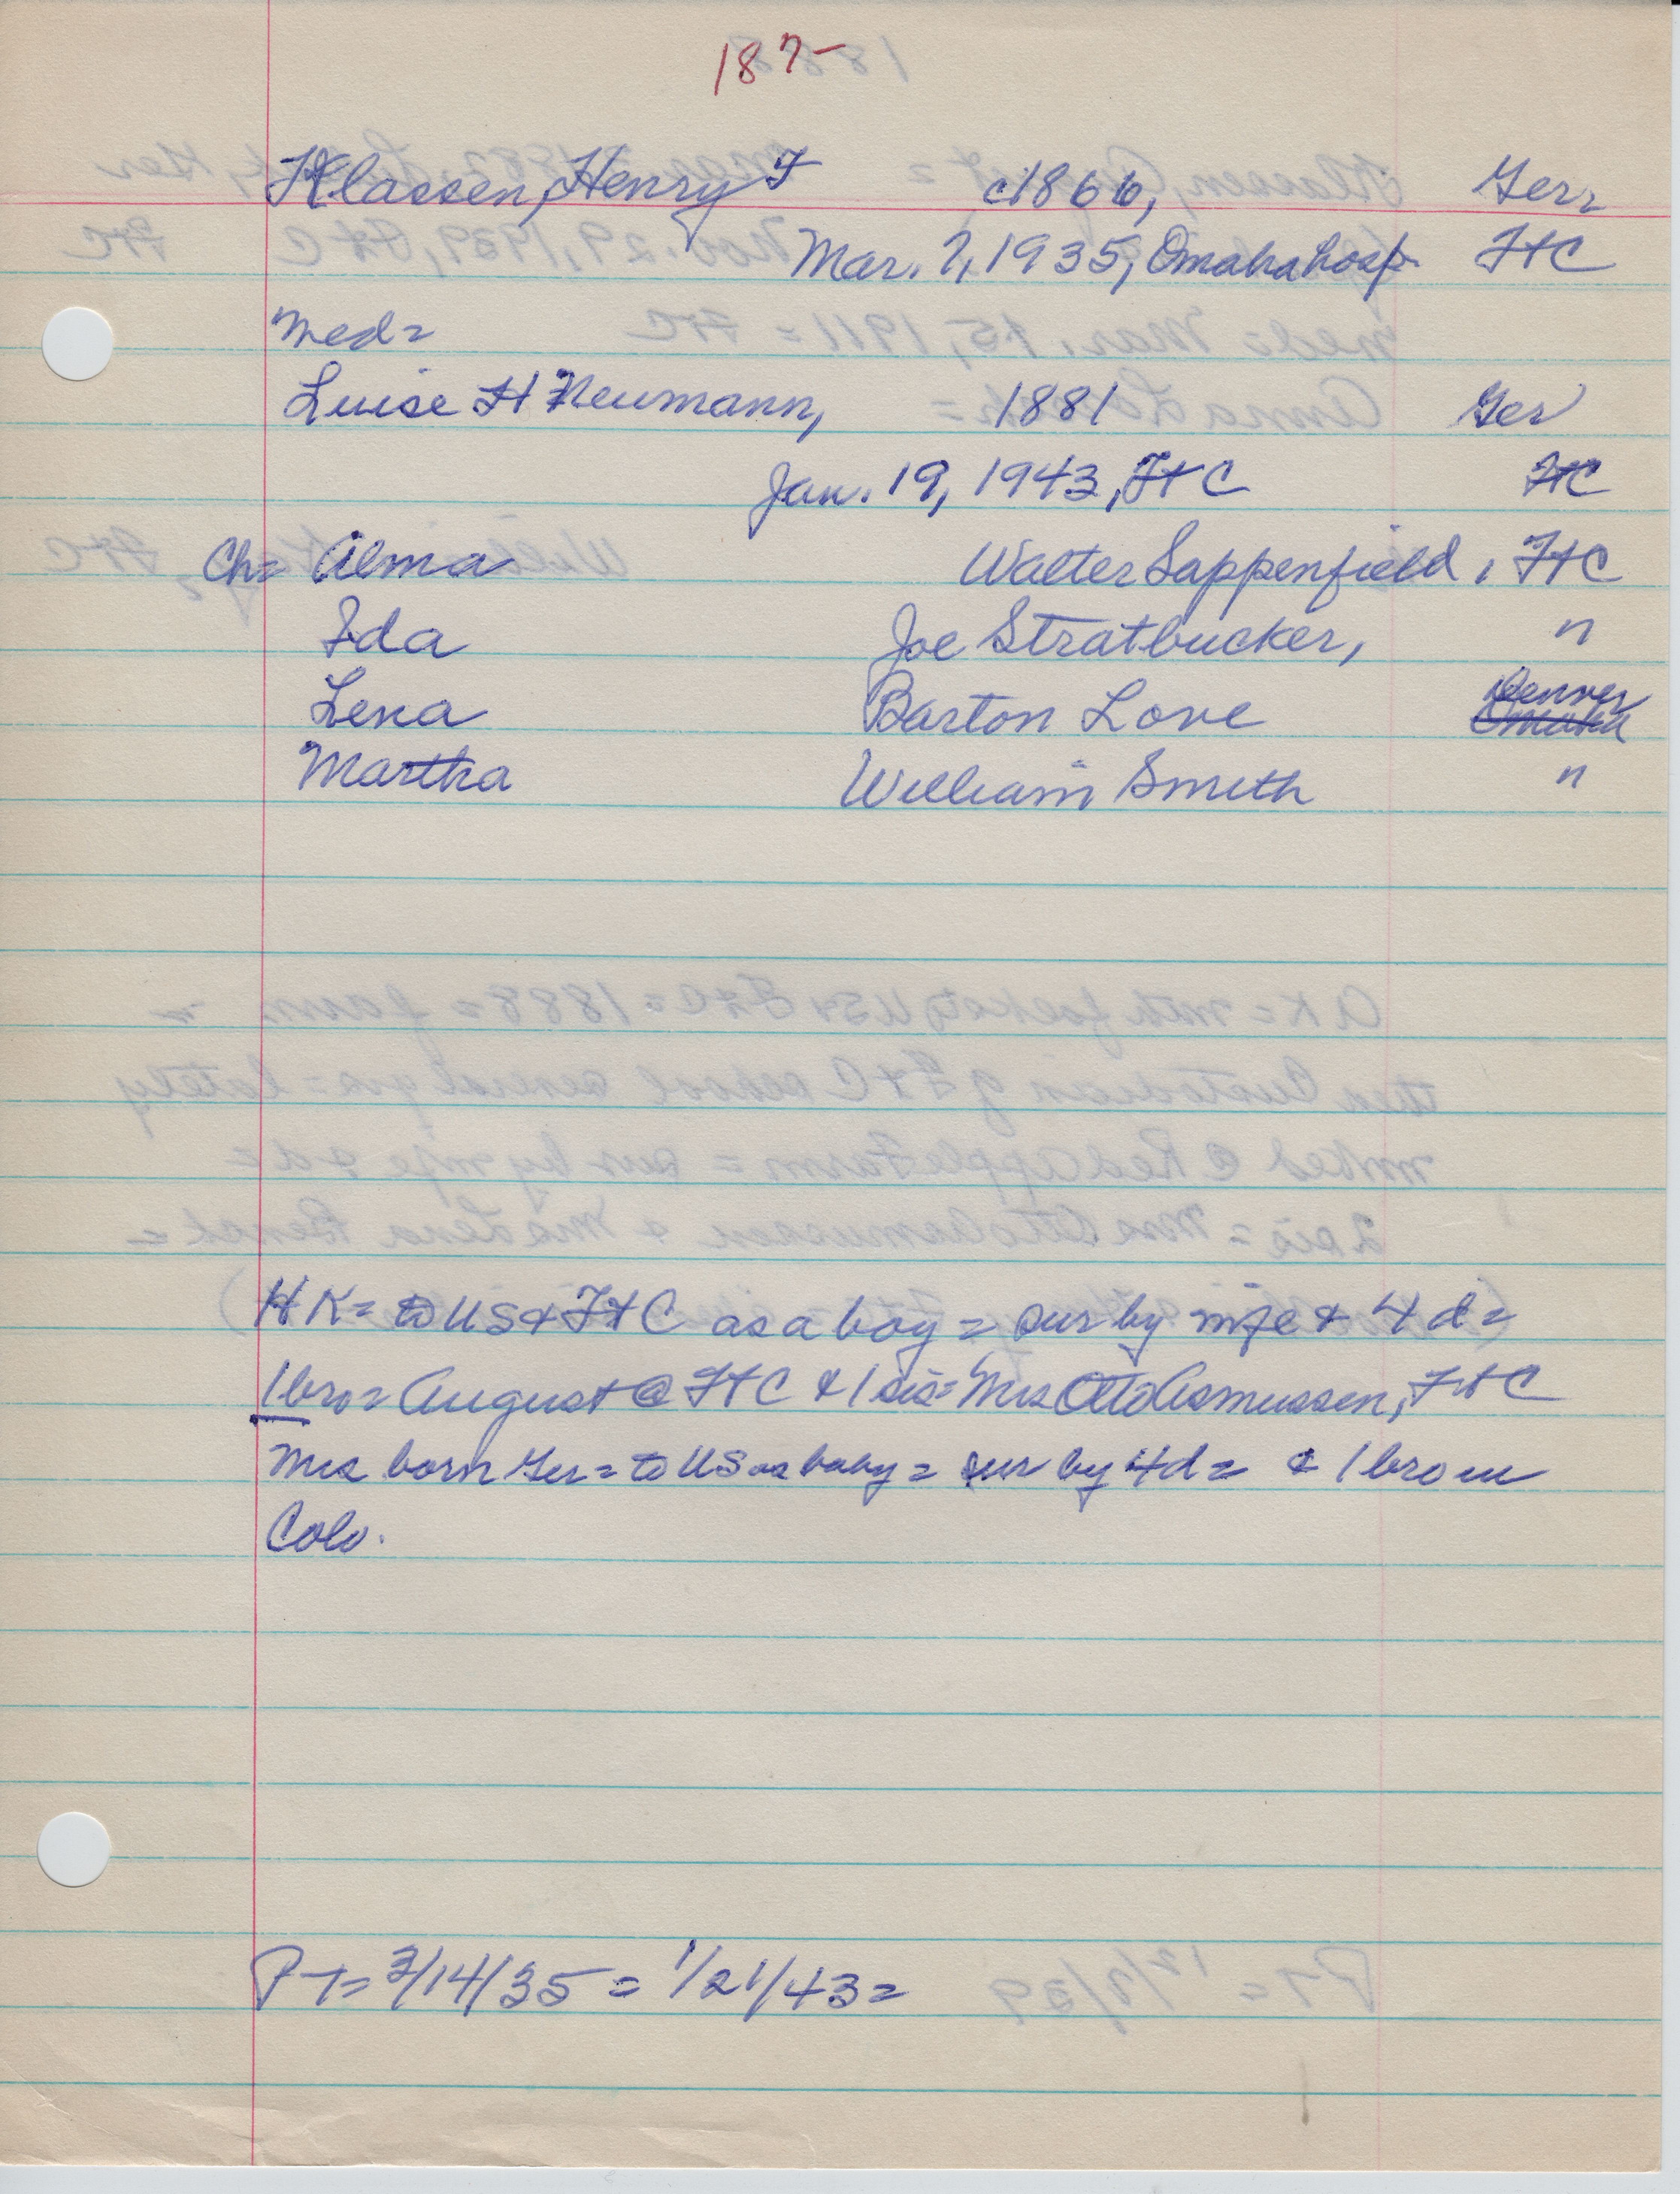 187-
Klassen, Henry F c1866, Ger=
Mar. 7, 1935, Omaha hosp. FtC
med=
Luise H Neumann, 1881 Ger
Jan. 19, 1943, FtC FtC
Ch= Alma Walter Sappenfield, FtC
Ida Joe Stratbucker, "
Lena Barton Love Denver Omaha
Martha William Smith "
HK= to US & FtC as a boy = sur by wife & 4 d=
1 bro= August @ FtC & 1 sis= Mrs Otto Asmussen, FtC
Mrs born Ger= to US as baby= sur by 4d= & 1 bro in
Colo.
PT= 3/14/35 = 1/21/43=